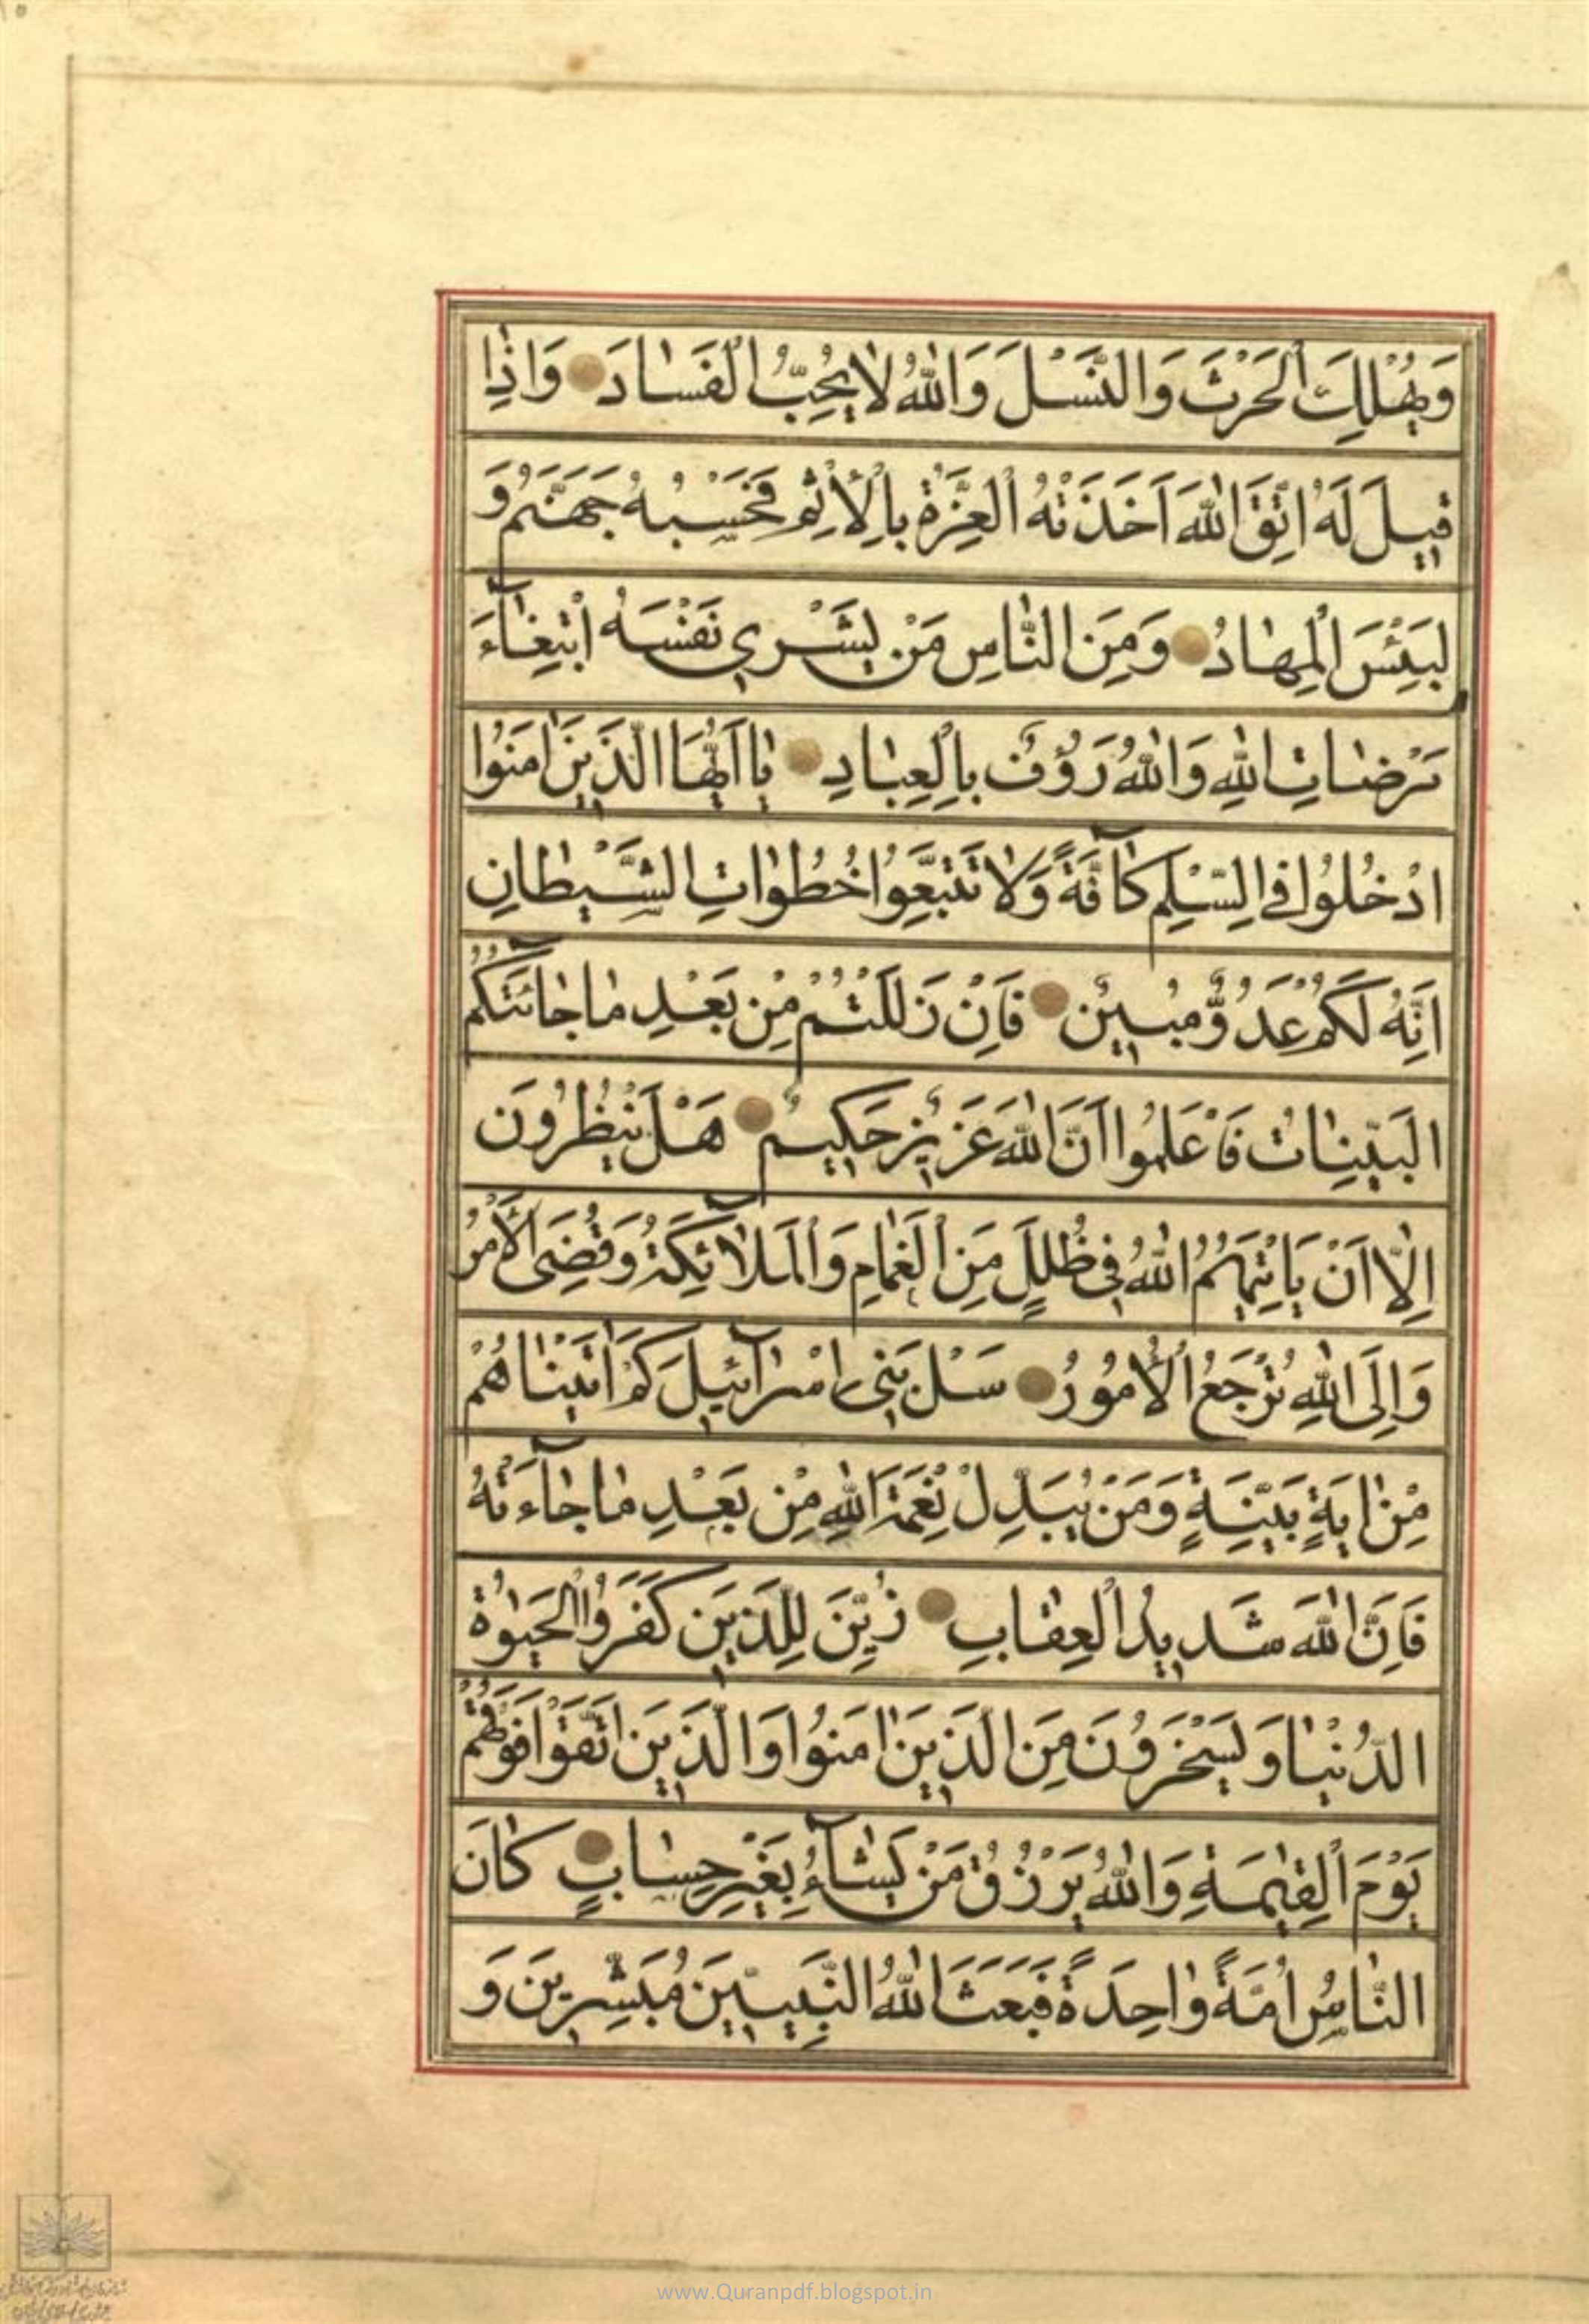 وَيُهْلِكَ الْحَرْثَ وَالنَّسْلَ وَاللّٰهُ لَا يُحِبُّ الْفَسٰادَ وَاِذٰا
قِيلَ لَهُ اتَّقِ اللّٰهَ اَخَذَتْهُ الْعِزَّةُ بِالْاِثْمِ فَحَسْبُهُ جَهَنَّمُ وَ
لَبِئْسَ الْمِهٰادُ وَمِنَ النّٰاسِ مَنْ يَشْرِي نَفْسَهُ ابْتِغٰٓاءَ
مَرْضٰاتِ اللّٰهِ وَاللّٰهُ رَؤُفٌ بِالْعِبٰادِ يٰااَيُّهَا الَّذِينَ اٰمَنُوا
ادْخُلُوا فِي السِّلْمِ كٰٓافَّةً وَلٰا تَتَّبِعُوا خُطُوٰاتِ الشَّيْطٰانِ
اِنَّهُ لَكُمْ عَدُوٌّ مُبِينٌ فَاِنْ زَلَلْتُمْ مِنْ بَعْدِ مٰا جٰٓائَتْكُمُ
الْبَيِّنٰاتُ فَاعْلَمُوا اَنَّ اللّٰهَ عَزِيزٌ حَكِيمٌ هَلْ يَنْظُرُونَ
اِلّٰا اَنْ يَاْتِيَهُمُ اللّٰهُ فِي ظُلَلٍ مِنَ الْغَمٰامِ وَالْمَلٰٓائِكَةُ وَقُضِيَ الْاَمْرُ
وَاِلَى اللّٰهِ تُرْجَعُ الْاُمُورُ سَلْ بَنِي اِسْرٰٓائِيلَ كَمْ اٰتَيْنٰاهُمْ
مِنْ اٰيَةٍ بَيِّنَةٍ وَمَنْ يُبَدِّلْ نِعْمَةَ اللّٰهِ مِنْ بَعْدِ مٰا جٰٓاءَتْهُ
فَاِنَّ اللّٰهَ شَدِيدُ الْعِقٰابِ زُيِّنَ لِلَّذِينَ كَفَرُوا الْحَيٰوةُ
الدُّنْيٰا وَيَسْخَرُونَ مِنَ الَّذِينَ اٰمَنُوا وَالَّذِينَ اتَّقَوْا فَوْقَهُمْ
يَوْمَ الْقِيٰمَةِ وَاللّٰهُ يَرْزُقُ مَنْ يَشٰٓاءُ بِغَيْرِ حِسٰابٍ كٰانَ
النّٰاسُ اُمَّةً وٰاحِدَةً فَبَعَثَ اللّٰهُ النَّبِيِّينَ مُبَشِّرِينَ وَ
www.Quranpdf.blogspot.in